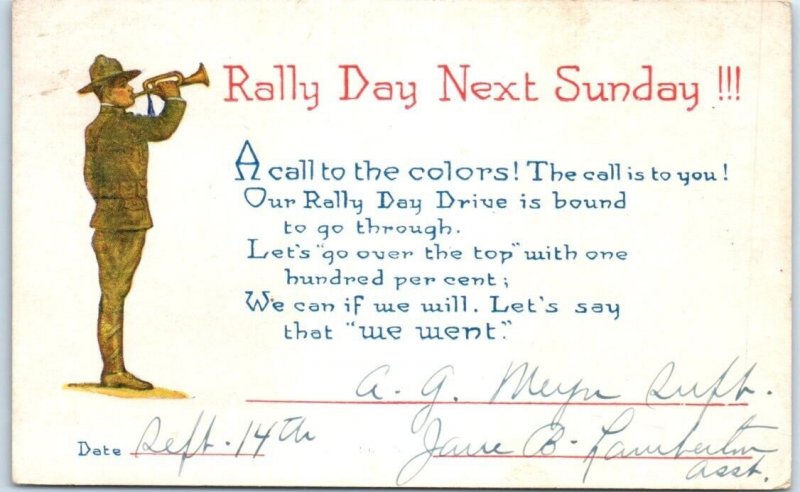 Rally Day Next Sunday !!!
A call to the colors! The call is to you!
Our Rally Day Drive is bound
to go through.
Let's "go over the top" with one
hundred per cent;
We can if we will. Let's say
that "we went."
A. G. Meyn Supt.
Date Sept. 14th
Jane B. Lamberton
asst.